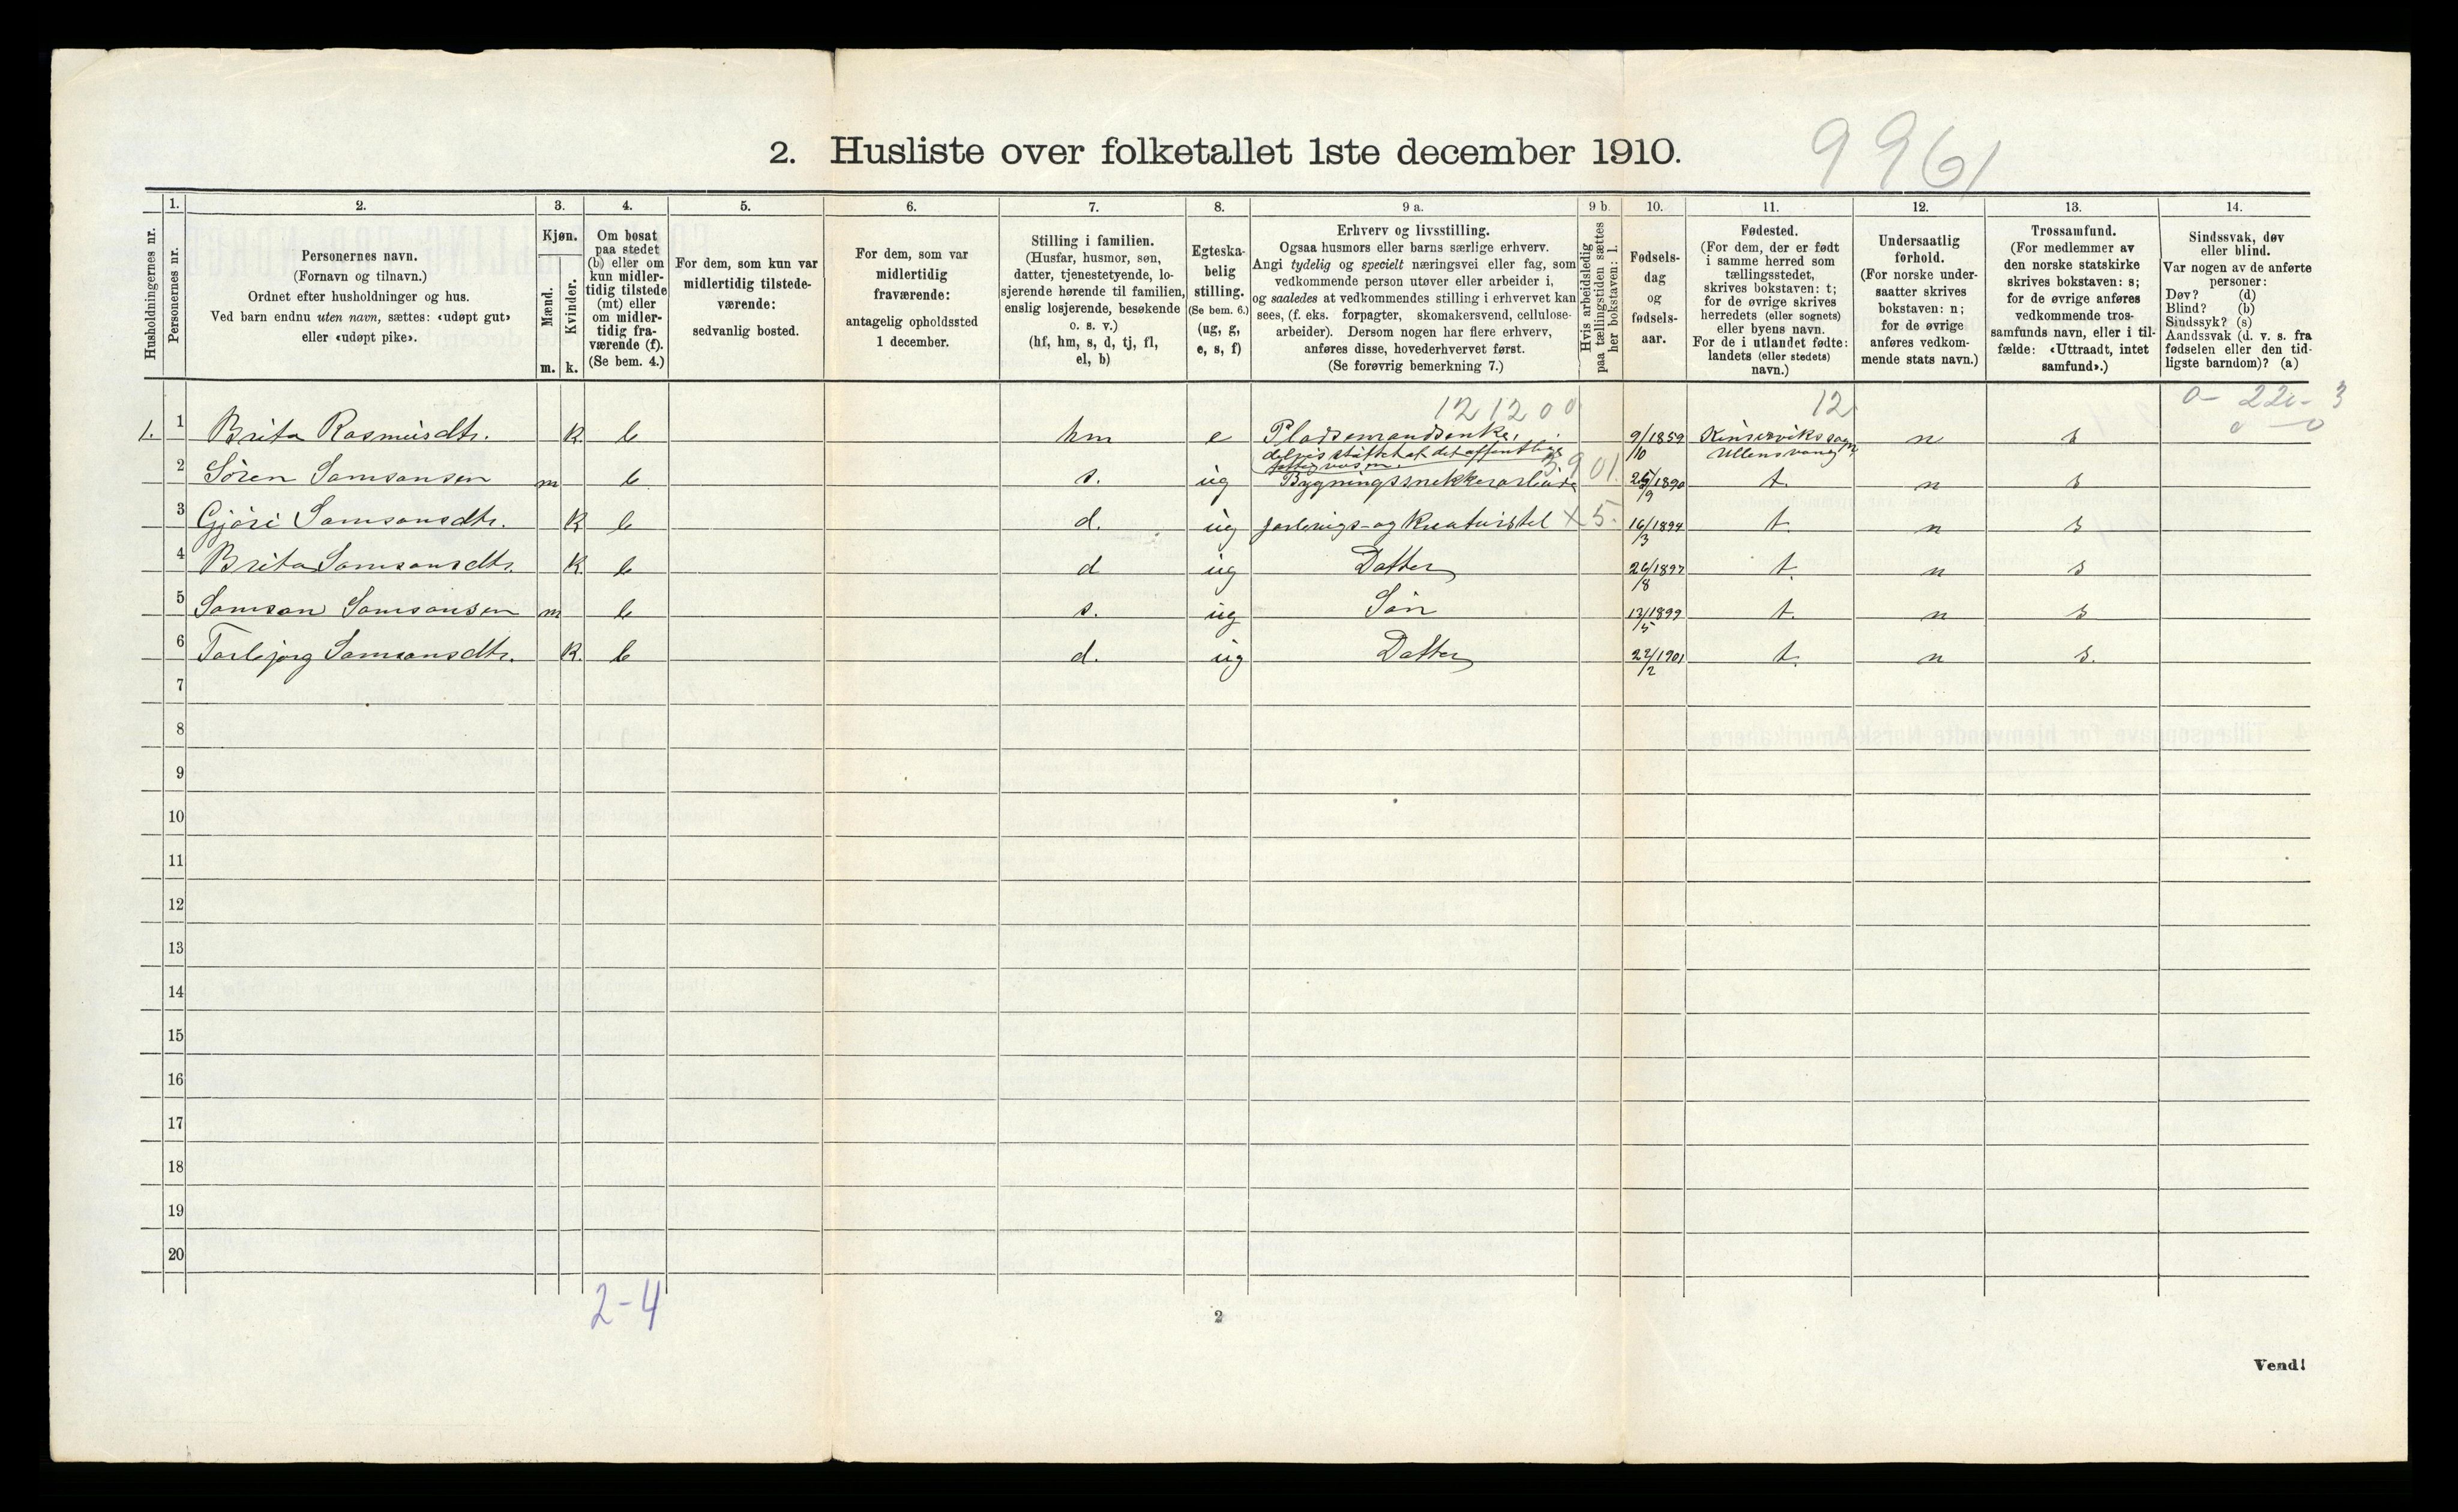 2. Husliste over folketallet 1ste december 1910.
9961
1. 2. 3. 4. 5. 6. 7. 8. 9 a. 9 b. 10. 11. 12. 13. 14.
Husholdningernes nr.
Personernes nr.
Personernes navn.
(Fornavn og tilnavn.)
Ordnet efter husholdninger og hus.
Ved barn endnu uten navn, sættes: «udøpt gut»
eller «udøpt pike».
Kjøn.
Mænd.
Kvinder.
m. k.
Om bosat
paa stedet
(b) eller om
kun midler-
tidig tilstede
(mt) eller
om midler-
tidig fra-
værende (f).
(Se bem. 4.)
For dem, som kun var
midlertidig tilstede-
værende:
sedvanlig bosted.
For dem, som var
midlertidig
fraværende:
antagelig opholdssted
1 december.
Stilling i familien.
(Husfar, husmor, søn,
datter, tjenestetyende, lo-
sjerende hørende til familien,
enslig losjerende, besøkende
o. s. v.)
(hf, hm, s, d, tj, fl,
el, b)
Egteska-
belig
stilling.
(Se bem. 6.)
(ug, g,
e, s, f)
Erhverv og livsstilling.
Ogsaa husmors eller barns særlige erhverv.
Angi tydelig og specielt næringsvei eller fag, som
vedkommende person utøver eller arbeider i,
og saaledes at vedkommendes stilling i erhvervet kan
sees, (f. eks. forpagter, skomakersvend, cellulose-
arbeider). Dersom nogen har flere erhverv,
anføres disse, hovederhvervet først.
(Se forøvrig bemerkning 7.)
Hvis arbeidsledig
paa tællingstiden sættes
her bokstaven: l.
Fødsels-
dag
og
fødsels-
aar.
Fødested.
(For dem, der er født
i samme herred som
tællingsstedet,
skrives bokstaven: t;
for de øvrige skrives
herredets (eller sognets)
eller byens navn.
For de i utlandet fødte:
landets (eller stedets)
navn.)
Undersaatlig
forhold.
(For norske under-
saatter skrives
bokstaven: n;
for de øvrige
anføres vedkom-
mende stats navn.)
Trossamfund.
(For medlemmer av
den norske statskirke
skrives bokstaven: s;
for de øvrige anføres
vedkommende tros-
samfunds navn, eller i til-
fælde: «Uttraadt, intet
samfund».)
Sindssvak, døv
eller blind.
Var nogen av de anførte
personer:
Døv? (d)
Blind? (b)
Sindssyk? (s)
Aandssvak (d. v. s. fra
fødselen eller den tid-
ligste barndom)? (a)
121200 12 0- 220- 3
1. 1 Brita Rasmusdtr. K b hm e Pladsemandsenke, 9/10 1859 Kinserviks sogn, Ullensvang n s
delvis støttet af det offentlige
fattigvæsen.
2 Søren Samsonsen m b s. ug Bygningssnekkerarbeide 5901. 25/9 1890 t. n s
3 Gjöri Samsonsdtr. K b d. ug forlovings- og Kreaturstel X5. 16/3 1894 t. n s
4 Brita Samsonsdtr. K b d ug Datter 26/8 1897 t. n s
5 Samson Samsonsen m b s. ug Søn 13/5 1899 t. n s
6 Torbjørg Samsonsdtr. K. b d. ug Datter 22/2 1901 t. n s.
7
8
9
10
11
12
13
14
15
16
17
18
19
20
2-4
2
Vend!